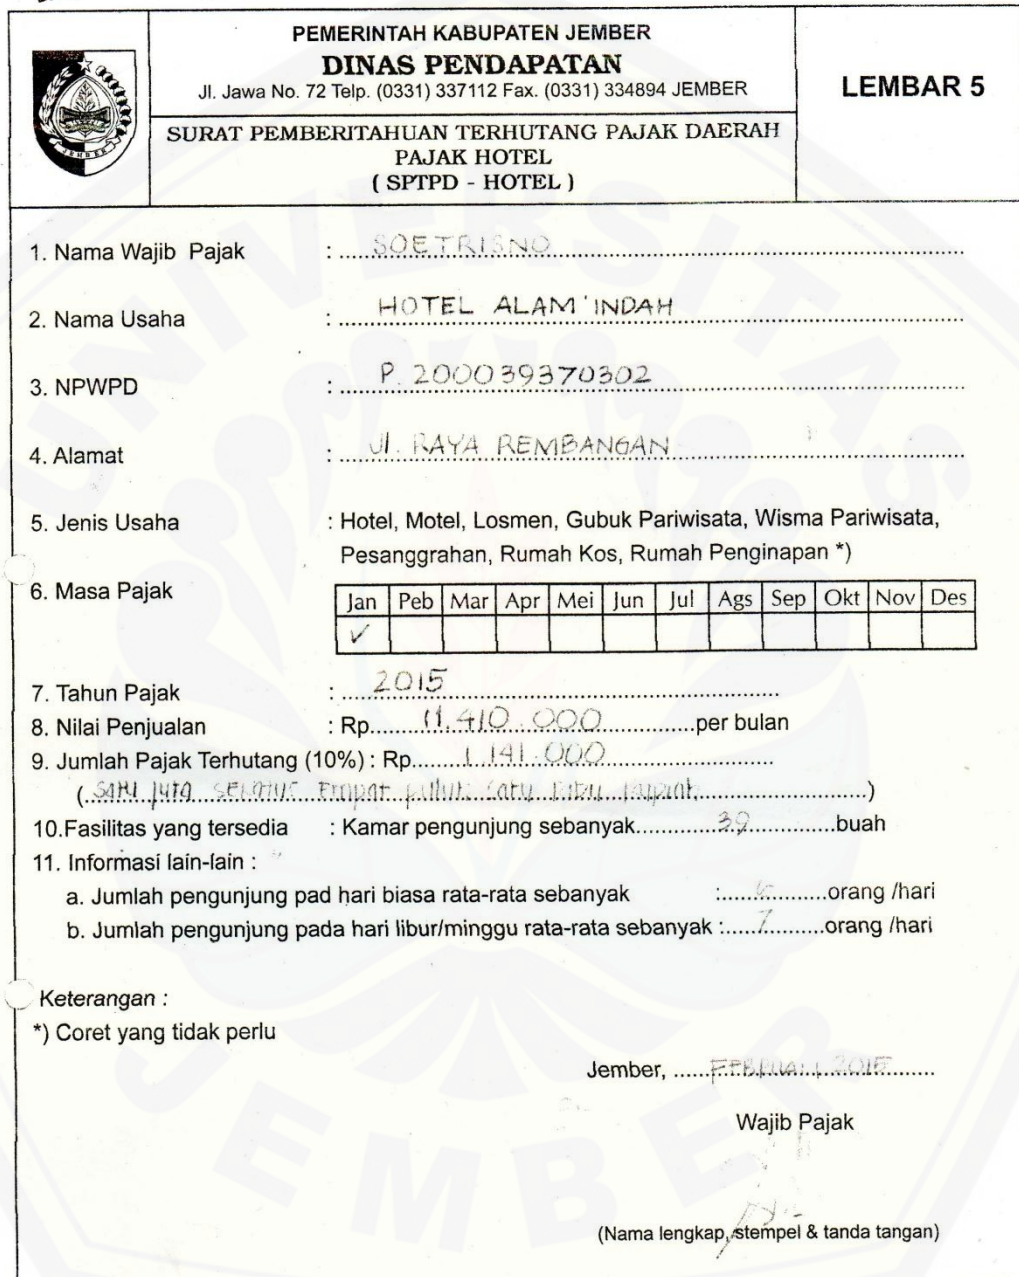 PEMERINTAH KABUPATEN JEMBER
DINAS PENDAPATAN
Jl. Jawa No. 72 Telp. (0331) 337112 Fax. (0331) 334894 JEMBER
LEMBAR 5
JEMBER
SURAT PEMBERITAHUAN TERHUTANG PAJAK DAERAH
PAJAK HOTEL
( SPTPD - HOTEL )
UNIVERSITAS JEMBER
1. Nama Wajib Pajak : SOETRISNO
2. Nama Usaha : HOTEL ALAM INDAH
3. NPWPD : P. 200039370302
4. Alamat : Jl. RAYA REMBANGAN
5. Jenis Usaha : Hotel, Motel, Losmen, Gubuk Pariwisata, Wisma Pariwisata,
Pesanggrahan, Rumah Kos, Rumah Penginapan *)
6. Masa Pajak
Jan Peb Mar Apr Mei Jun Jul Ags Sep Okt Nov Des
✓
7. Tahun Pajak : 2015
8. Nilai Penjualan : Rp. 11.410.000 per bulan
9. Jumlah Pajak Terhutang (10%) : Rp. 1.141.000
( Satu juta seratus Empat puluh satu Ribu rupiah )
10.Fasilitas yang tersedia : Kamar pengunjung sebanyak 39 buah
11. Informasi lain-lain :
a. Jumlah pengunjung pad hari biasa rata-rata sebanyak : orang /hari
b. Jumlah pengunjung pada hari libur/minggu rata-rata sebanyak : 7 orang /hari
Keterangan :
*) Coret yang tidak perlu
Jember, FEBRUARI 2015
Wajib Pajak
(Nama lengkap, stempel & tanda tangan)